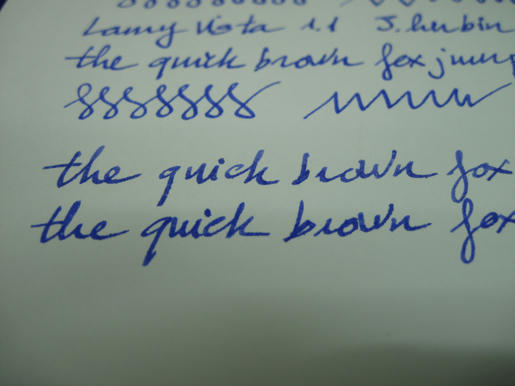 Lamy Vista 1.1 J. herbin
the quick brown fox jump
the quick brown fox
the quick brown fox